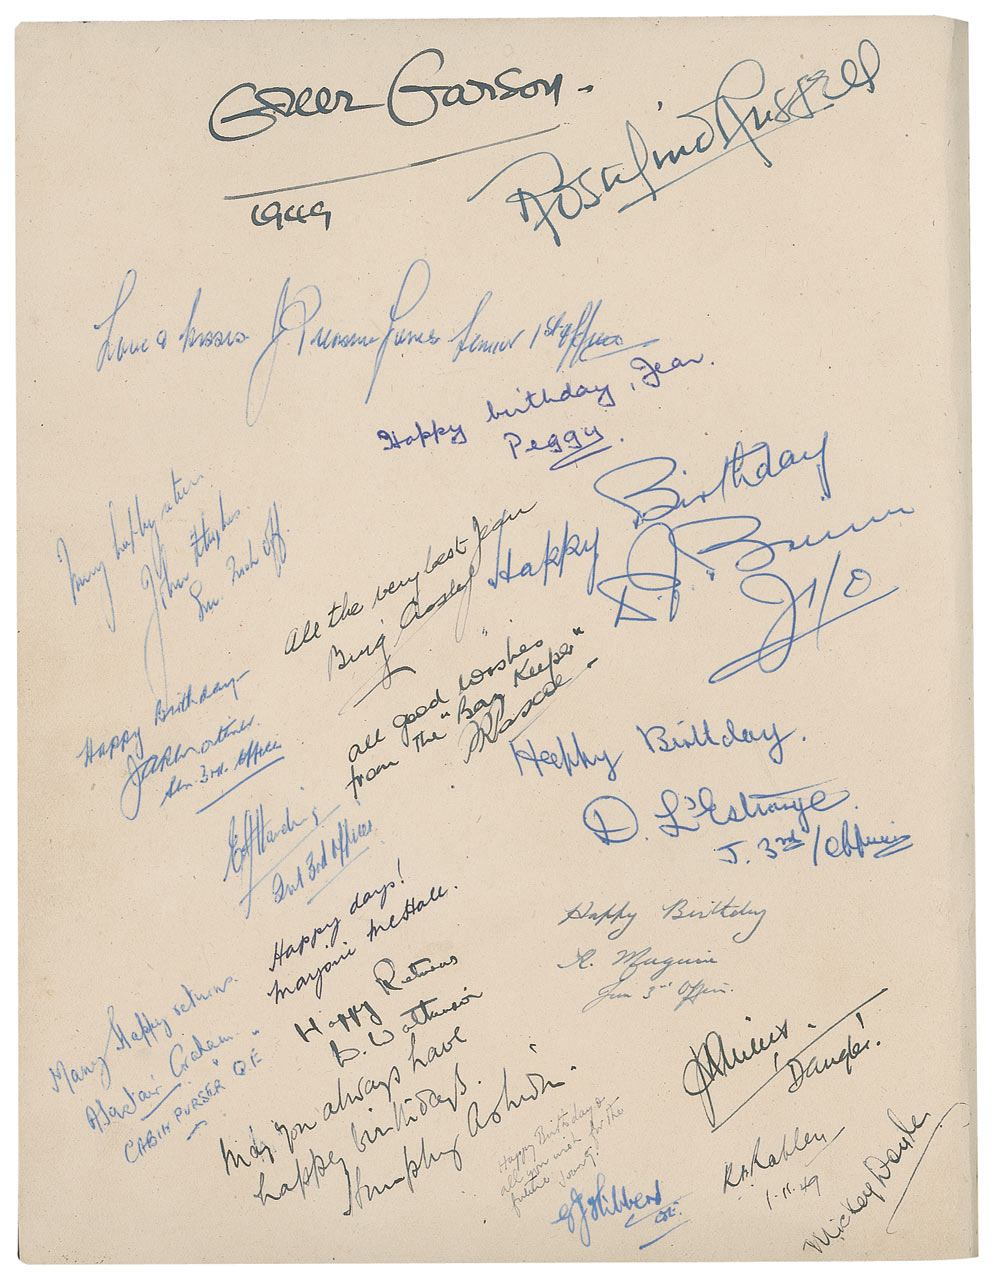 Greer Garson.
1949
Rosalind Russell
Love & kisses J. Jones Senior 1st Officer
Happy birthday, Jean.
Peggy.
Many happy returns
John Hughes
Happy Birthday
J/1/O
All the very best Jean
Bing Crosby
all good wishes
from The "Bar Keeper"
Happy Birthday
Sen. 3rd. Officer
Happy Birthday.
D. L'Estrange.
J. 3rd/Officer
E A Harding
3rd Officer
Happy days!
Marjorie McHale.
Happy Birthday
R. Maguire
Jun 3rd Officer.
Happy Returns
Many Happy returns.
Alastair Graham
CABIN PURSER Q.E
May you always have
happy birthdays.
Humphry
Danger!
Happy Birthday &
all you wish for the
future Young!
Hibbert
1.11.49
Mickey Doyle